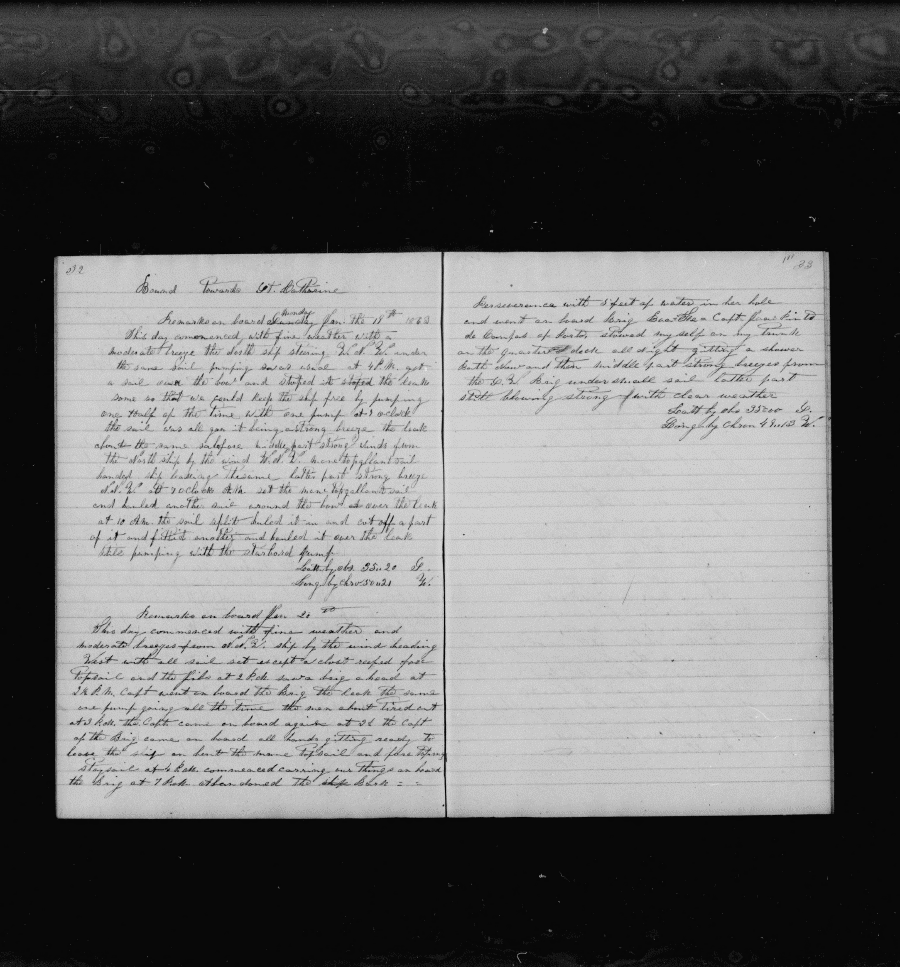 32
Bound Towards St. Catharine
Remarks on board Sunday Monday Jan. the 19th 1863
This day commenced with fine weather with a
moderate breeze the North ship steering W.N.W. under
the same sail pumping as usual at 4 P.M. got
a sail over the bow and stoped the leak
some so that we could keep the ship free by pumping
one half of the time with one pump at 8 oClock
the sail was all gon it being a strong breeze the leak
about the same as before middle part strong winds from
the North ship by the wind W.N.W. mane topgallant sail
handed ship leaking the same latter part strong breeze
N.N.W. at 7 oClock A.M. set the mane topgallant sail
and hauled another sail around the bow over the leak
at 10 A.M. the sail split huled it in and cut off a part
of it and fitted another and hauled it over the leak
still pumping with the starbord pump
Latt by obs 35" 20 S.
Long by Chro 50" 21 W.
Remarks on board Jan 20th
This day commenced with fine weather and
moderate breezes from N.N.W. ship by the wind heading
West with all sail set except a closet reefed fore
Topsail and the jibs at 2 P.M. saw a brig ahead at
2½ P.M. Capt went on board the Brig the leak the same
one pump going all the time the men about tired out
at 3 P.M. the Capt came on board again at 3½ the Capt
of the Brig came on board all hands gitting ready to
leave the ship on bent the mane Topsail and fore Topmast
Staysail at 4 P.M. commenced carring our things on board
the Brig at 7 P.M. abandoned the ship Bark = -
33
Perseverence with 5 feet of water in her hole
and went on board Brig Capt Jose Pinto
de Campas of Porto, stowed my self on my Trunk
on the quarter deck all night gitting a shower
Bath now and then middle part strong breezes from
the Brig under small sail latter part
still blowing strong with clear weather
Latt by obs 35" 00 S.
Long by Chron 49" W.